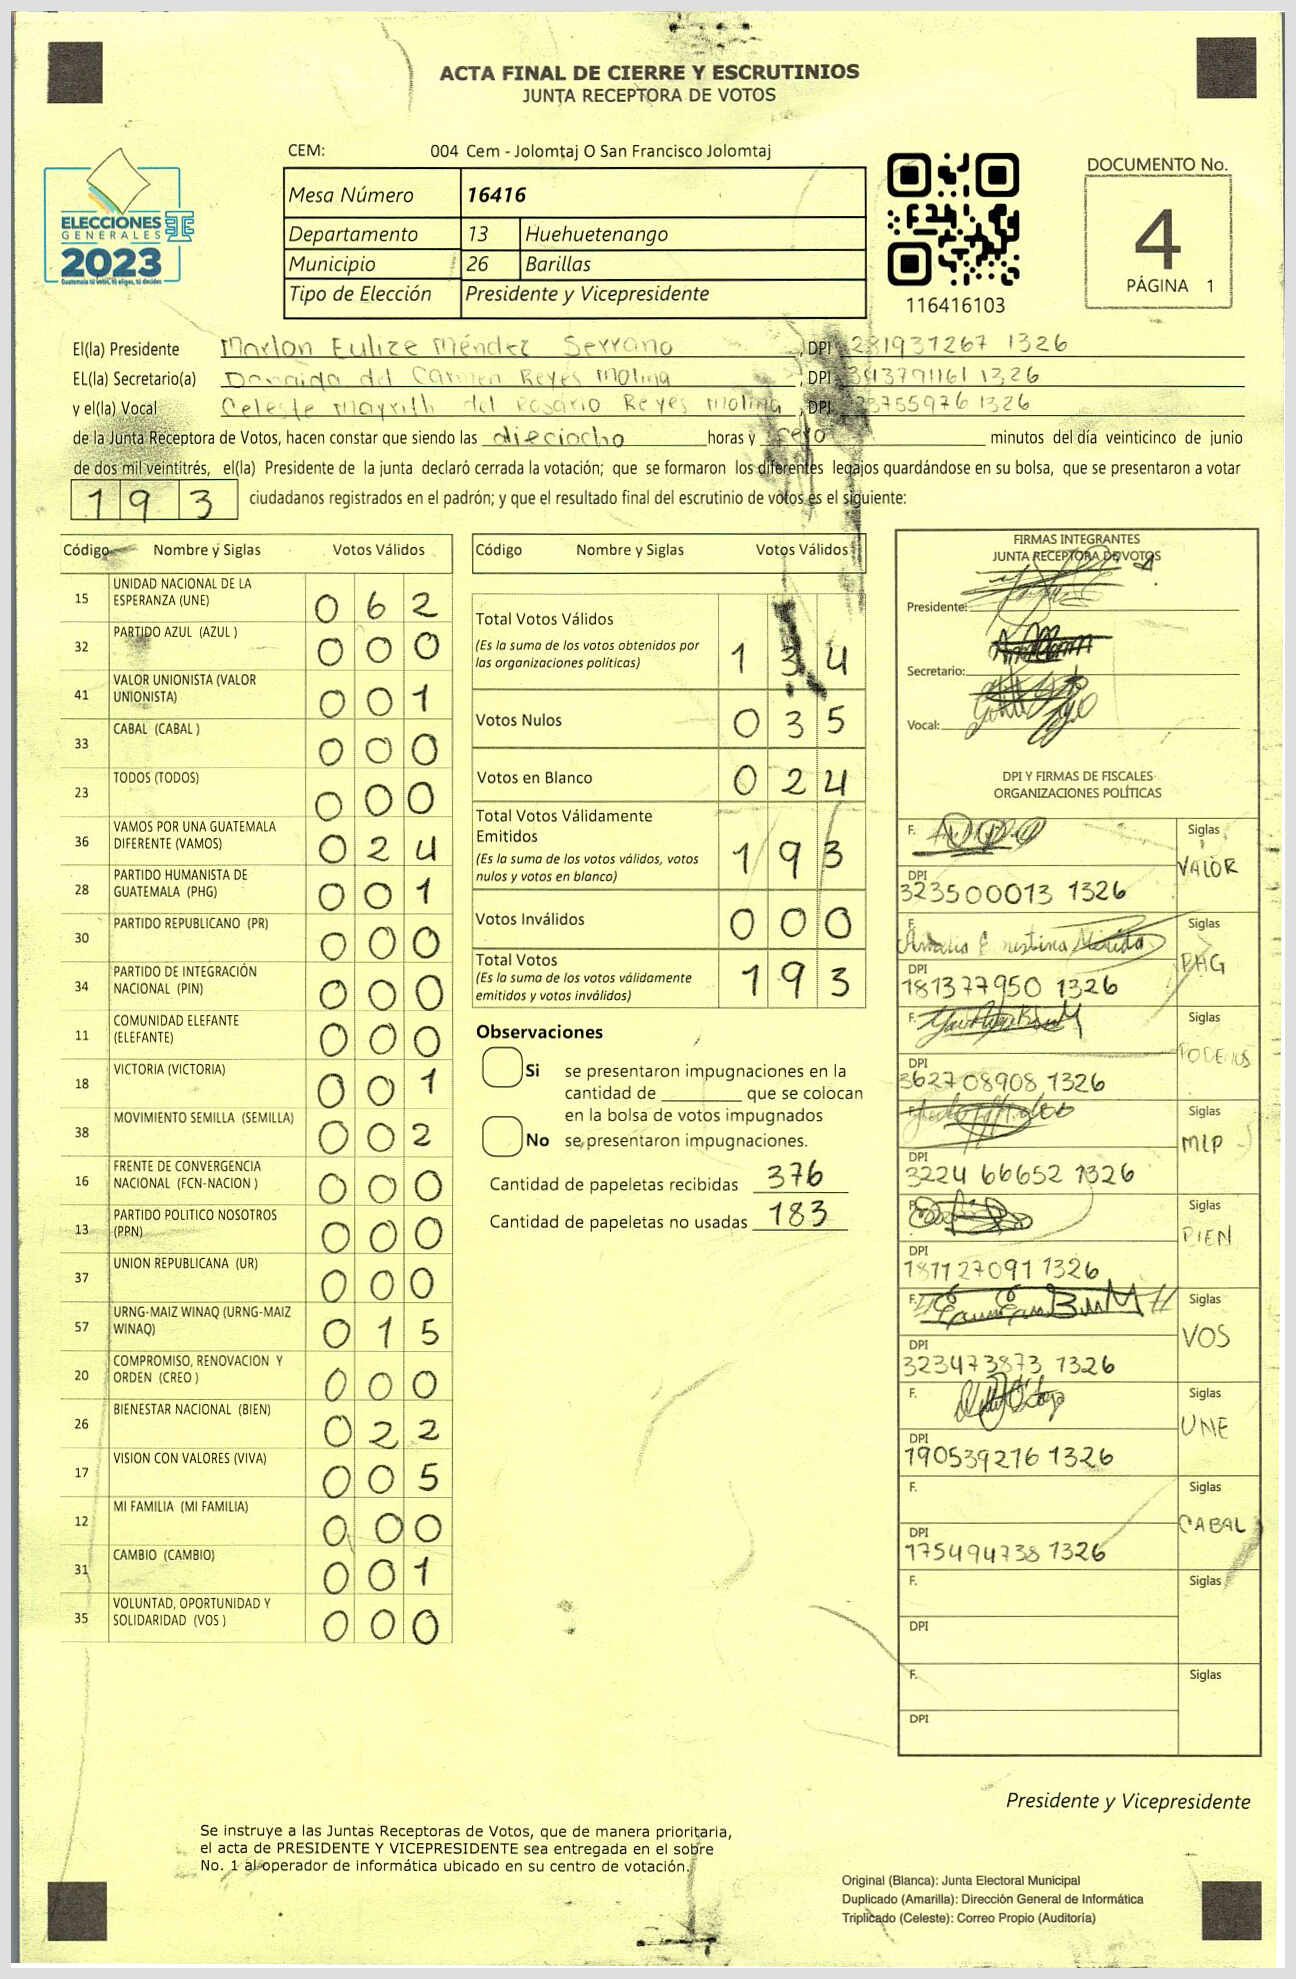 ACTA FINAL DE CIERRE Y ESCRUTINIOS
JUNTA RECEPTORA DE VOTOS
CEM: 004 Cem - Jolomtaj O San Francisco Jolomtaj
Mesa Número 16416
Departamento 13 Huehuetenango
Municipio 26 Barillas
Tipo de Elección Presidente y Vicepresidente
ELECCIONES
GENERALES
2023
Guatemala tú votas, tú eliges, tú decides
116416103
DOCUMENTO No.
4
PÁGINA 1
El(la) Presidente Marlon Eulize Méndez Serrano, DPI 281931267 1326
EL(la) Secretario(a) del Carmen Reyes Molina, DPI 1326
y el(la) Vocal Celeste Mayrith del Rosario Reyes Molina, DPI 1326
de la Junta Receptora de Votos, hacen constar que siendo las dieciocho horas y cero minutos del día veinticinco de junio
de dos mil veintitrés, el(la) Presidente de la junta declaró cerrada la votación; que se formaron los diferentes legajos guardándose en su bolsa, que se presentaron a votar
193 ciudadanos registrados en el padrón; y que el resultado final del escrutinio de votos es el siguiente:
Código Nombre y Siglas Votos Válidos
15 UNIDAD NACIONAL DE LA ESPERANZA (UNE) 0 6 2
32 PARTIDO AZUL (AZUL ) 0 0 0
41 VALOR UNIONISTA (VALOR UNIONISTA) 0 0 1
33 CABAL (CABAL ) 0 0 0
23 TODOS (TODOS) 0 0 0
36 VAMOS POR UNA GUATEMALA DIFERENTE (VAMOS) 0 2 4
28 PARTIDO HUMANISTA DE GUATEMALA (PHG) 0 0 1
30 PARTIDO REPUBLICANO (PR) 0 0 0
34 PARTIDO DE INTEGRACIÓN NACIONAL (PIN) 0 0 0
11 COMUNIDAD ELEFANTE (ELEFANTE) 0 0 0
18 VICTORIA (VICTORIA) 0 0 1
38 MOVIMIENTO SEMILLA (SEMILLA) 0 0 2
16 FRENTE DE CONVERGENCIA NACIONAL (FCN-NACION ) 0 0 0
13 PARTIDO POLITICO NOSOTROS (PPN) 0 0 0
37 UNION REPUBLICANA (UR) 0 0 0
57 URNG-MAIZ WINAQ (URNG-MAIZ WINAQ) 0 1 5
20 COMPROMISO, RENOVACION Y ORDEN (CREO ) 0 0 0
26 BIENESTAR NACIONAL (BIEN) 0 2 2
17 VISION CON VALORES (VIVA) 0 0 5
12 MI FAMILIA (MI FAMILIA) 0 0 0
31 CAMBIO (CAMBIO) 0 0 1
35 VOLUNTAD, OPORTUNIDAD Y SOLIDARIDAD (VOS ) 0 0 0
Código Nombre y Siglas Votos Válidos
Total Votos Válidos 1 3 4
(Es la suma de los votos obtenidos por
las organizaciones políticas)
Votos Nulos 0 3 5
Votos en Blanco 0 2 4
Total Votos Válidamente
Emitidos 1 9 3
(Es la suma de los votos válidos, votos
nulos y votos en blanco)
Votos Inválidos 0 0 0
Total Votos 1 9 3
(Es la suma de los votos válidamente
emitidos y votos inválidos)
Observaciones
Si se presentaron impugnaciones en la
cantidad de ________ que se colocan
en la bolsa de votos impugnados
No se presentaron impugnaciones.
Cantidad de papeletas recibidas 376
Cantidad de papeletas no usadas 183
FIRMAS INTEGRANTES
JUNTA RECEPTORA DE VOTOS
Presidente:
Secretario:
Vocal:
DPI Y FIRMAS DE FISCALES
ORGANIZACIONES POLÍTICAS
F. Siglas VALOR
DPI 323500013 1326
F. Siglas PHG
DPI 181377950 1326
F. Siglas PODEMOS
DPI 362708908 1326
F. Siglas MLP
DPI 3224 66652 1326
F. Siglas BIEN
DPI 181127091 1326
F. Siglas VOS
DPI 323473873 1326
F. Siglas UNE
DPI 190539276 1326
F. Siglas CABAL
DPI 175494738 1326
F. Siglas
DPI
F. Siglas
DPI
Presidente y Vicepresidente
Se instruye a las Juntas Receptoras de Votos, que de manera prioritaria,
el acta de PRESIDENTE Y VICEPRESIDENTE sea entregada en el sobre
No. 1 al operador de informática ubicado en su centro de votación.
Original (Blanca): Junta Electoral Municipal
Duplicado (Amarilla): Dirección General de Informática
Triplicado (Celeste): Correo Propio (Auditoría)